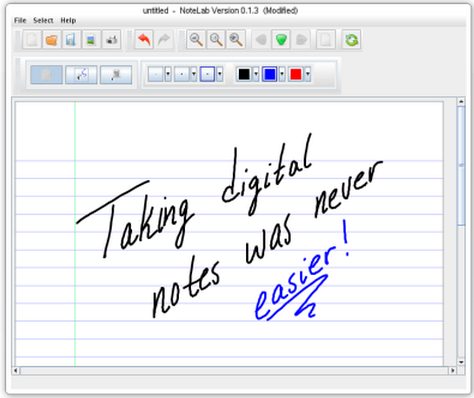 untitled - NoteLab Version 0.1.3 (Modified)
File Select Help
Taking digital
notes was never
easier!